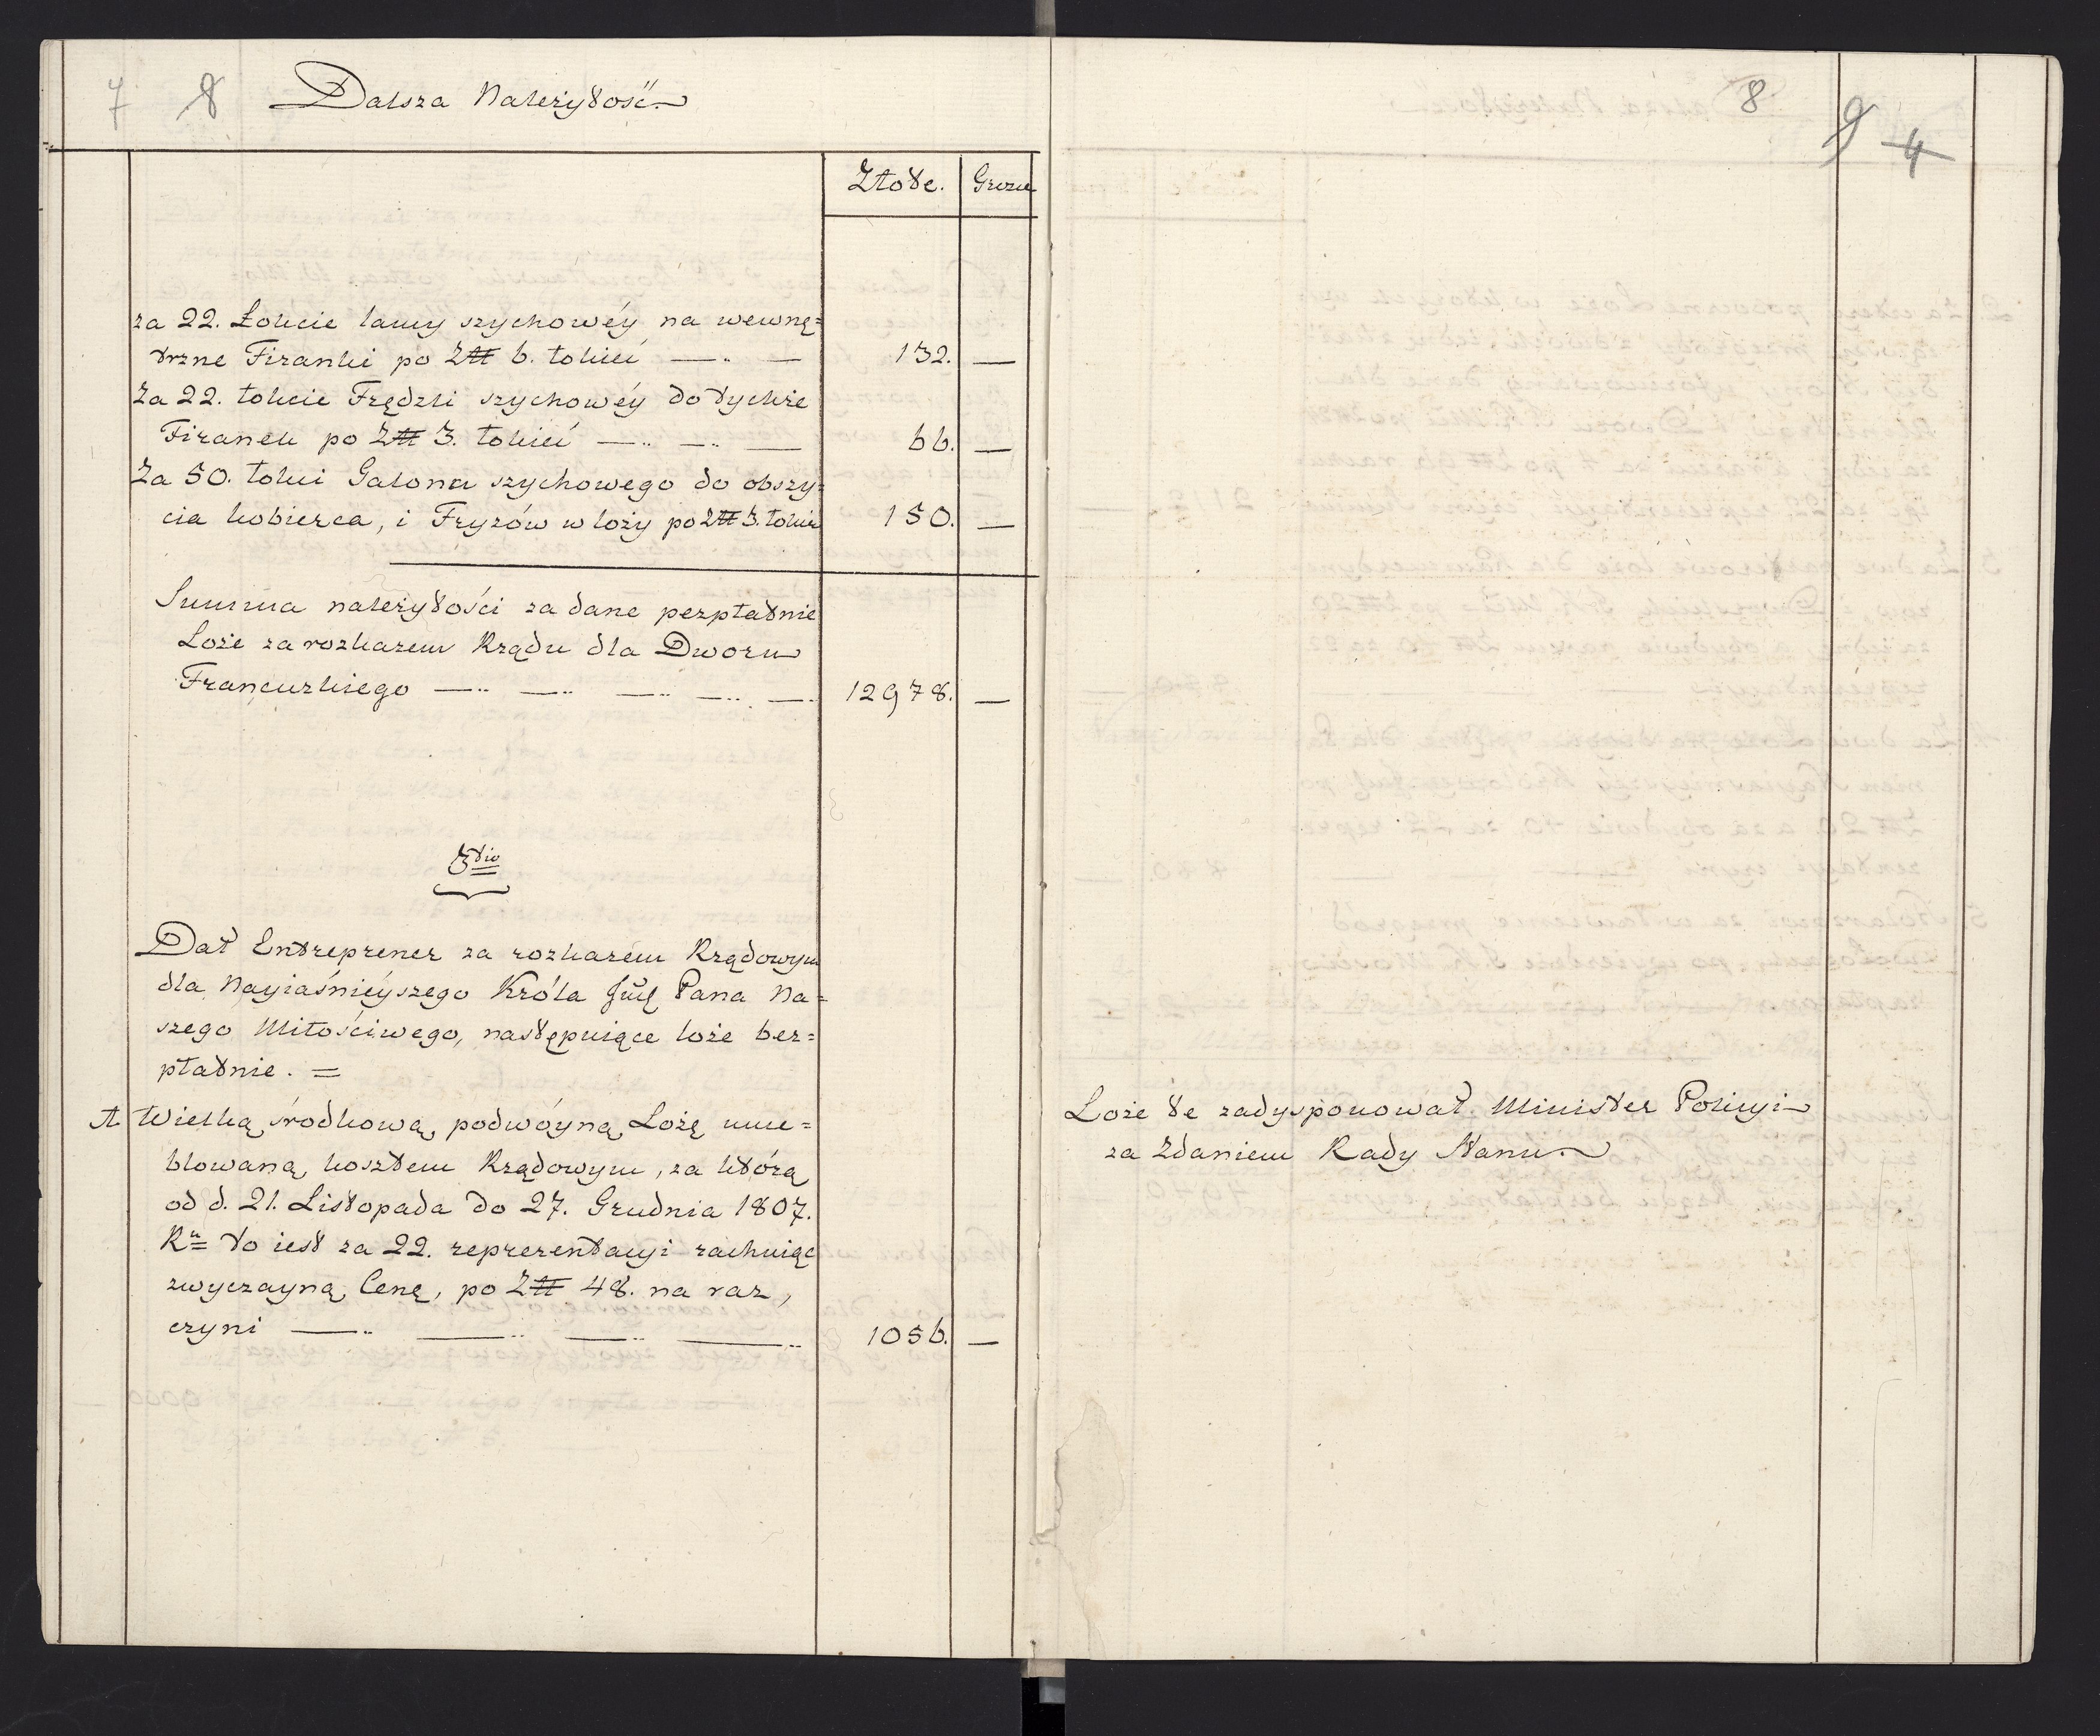 7 8 Dalsza Należytość
Złote. Grosze
za 22. Łokcie lamy szychowéy na wewnę=
trzne Firanki po Zł 6. łokieć — 132. —
Za 22. łokcie Frędzli szychowéy do tychże
Firanek po Zł 3. łokieć — 66. —
Za 50. łokci Galona szychowego do obszy=
cia kobierca, i Fryzów w loży po Zł 3. łokieć 150. —
Summa należytości za dane pezpłatnie
Loże za rozkazem Rządu dla Dworu
Francuzkiego — 12978. —
3tio
Dał Entreprener za rozkazem Rządowym
dla Nayiaśnieyszego Króla Pana Na=
szego Miłościwego, następuiące loże bez=
płatnie. =
A. Wielką, srodkową, podwóyną Lożę ume=
blowaną, kosztem Rządowym, za którą
od d. 21. Listopada do 27. Grudnia 1807.
Ru to iest za 22. reprezentacyi rachuiąc
zwyczayną Cenę, po Zł 48. na raz,
czyni — 1056. —
8 9 4
Loże te zadysponował Minister Policyi
za Zdaniem Rady Stanu